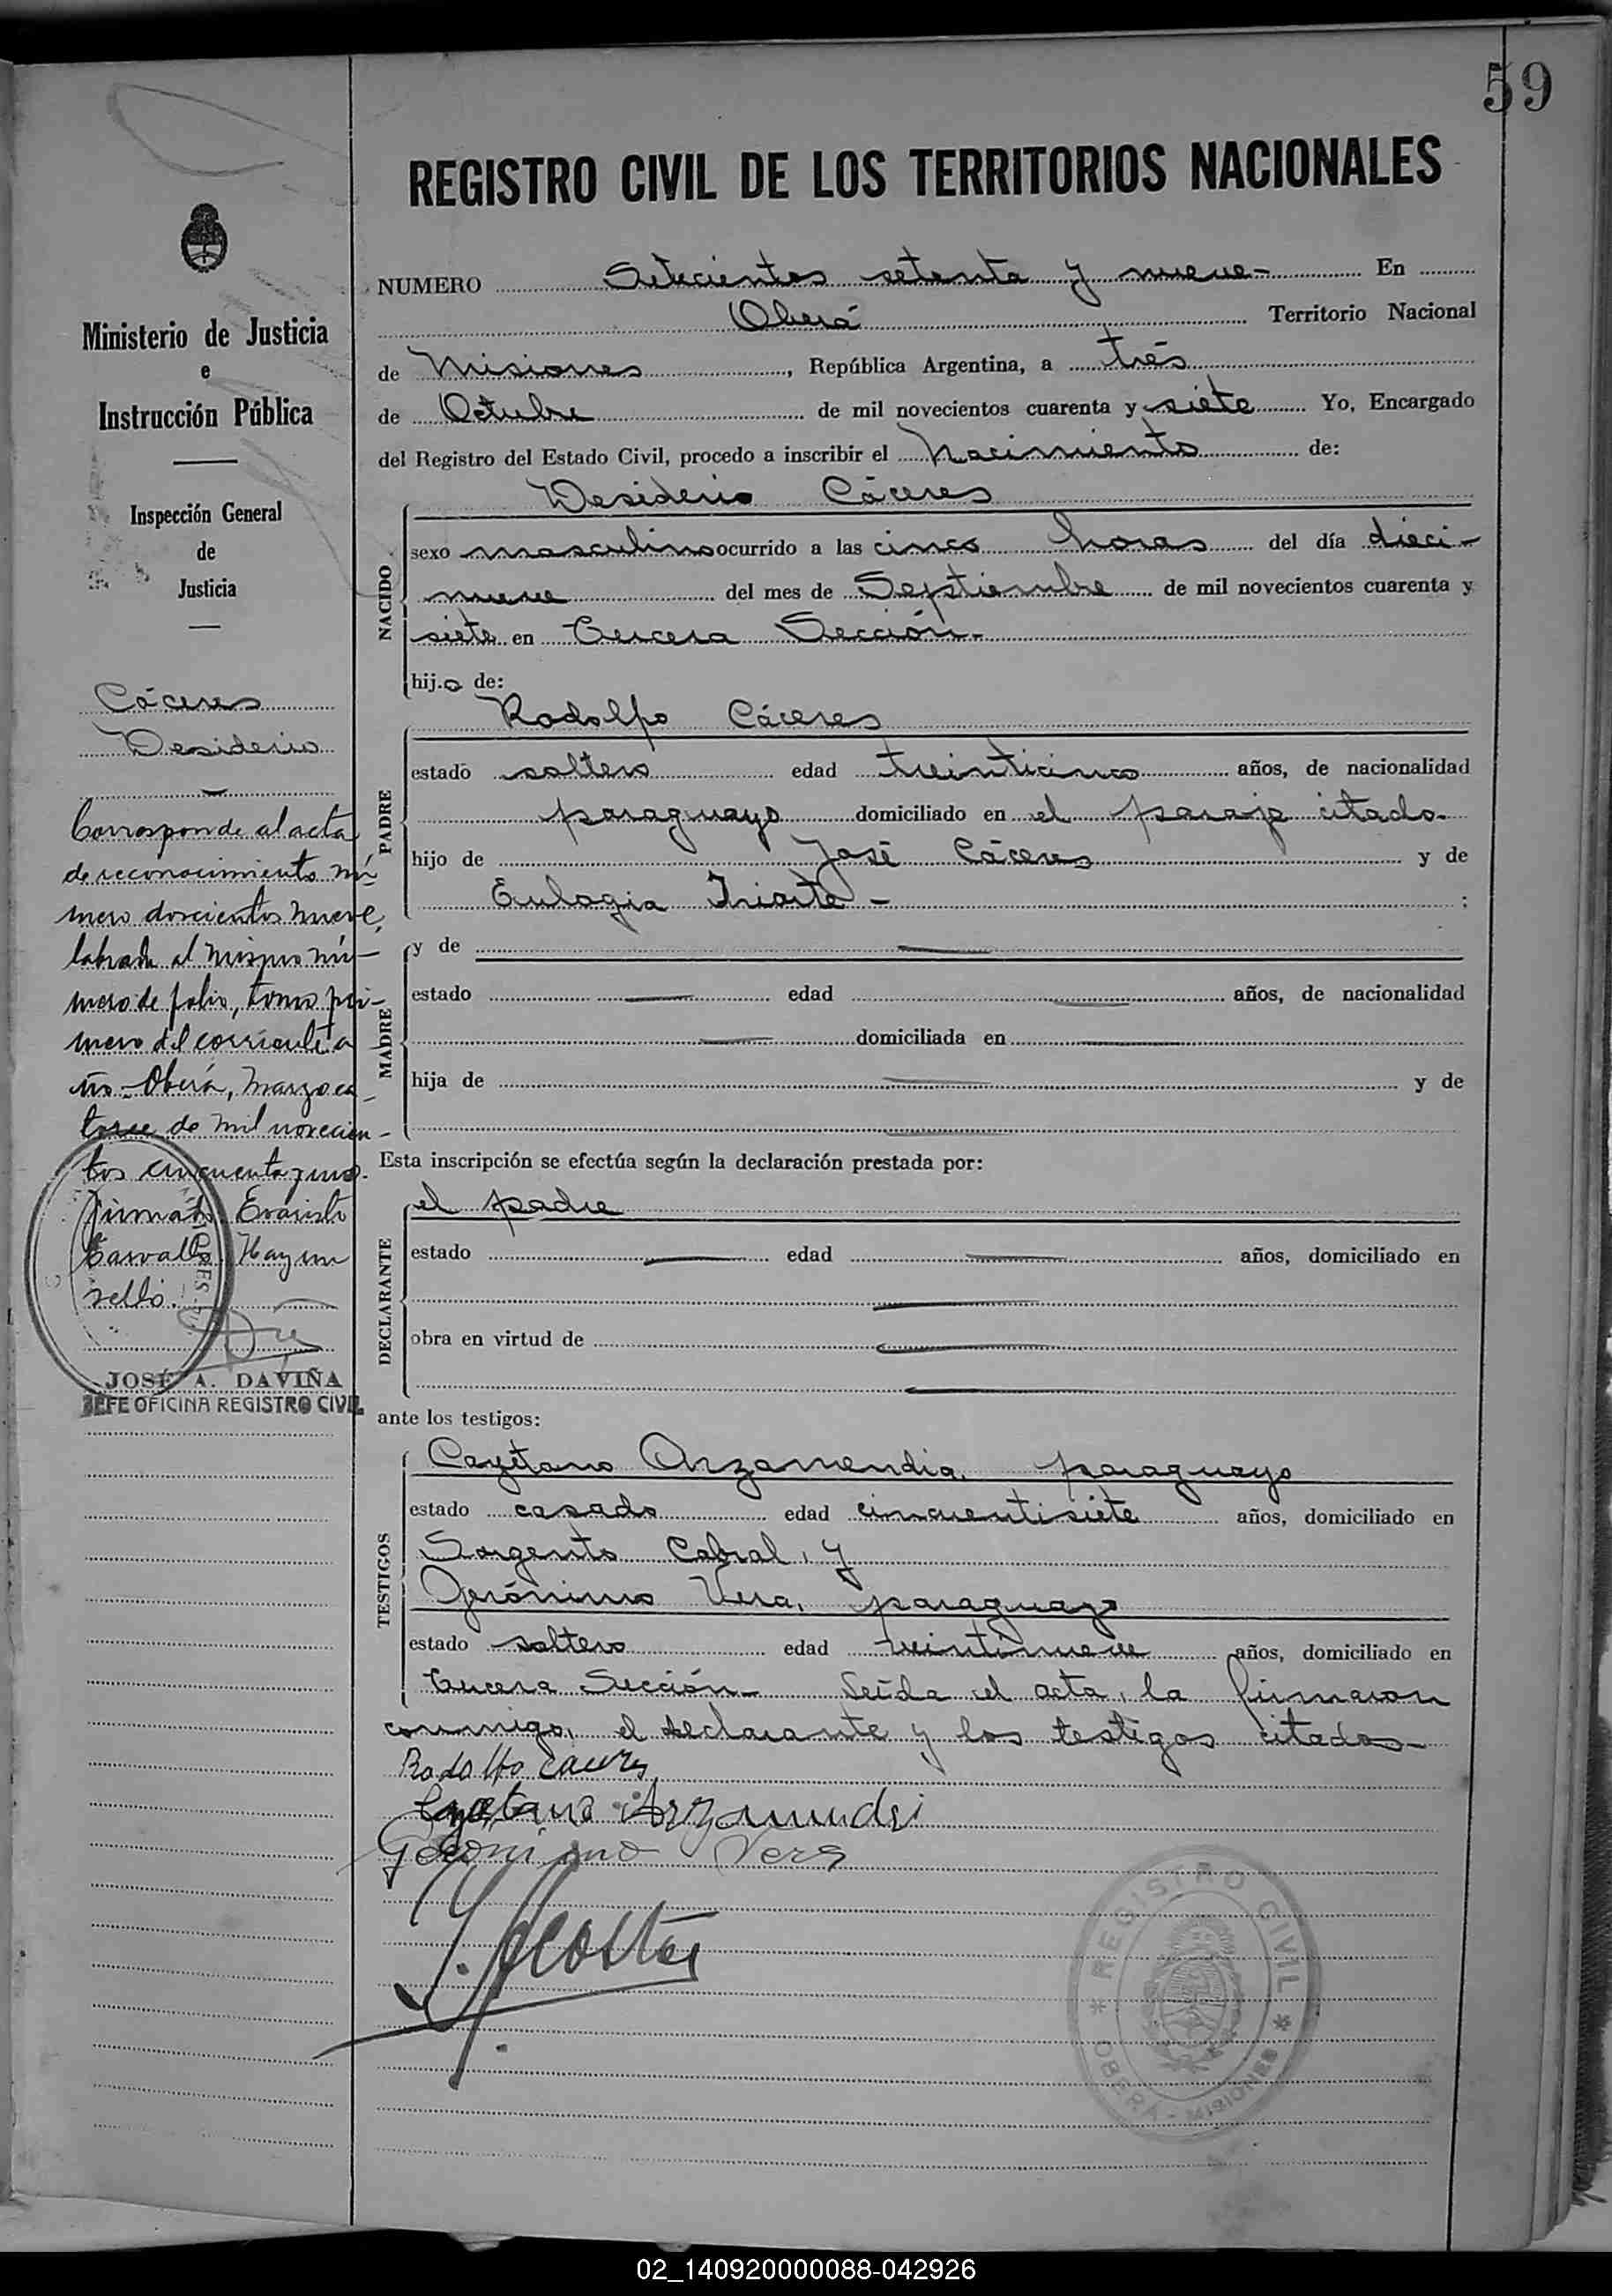 59
REGISTRO CIVIL DE LOS TERRITORIOS NACIONALES
Ministerio de Justicia
e
Instrucción Pública
Inspección General
de
Justicia
Cáceres
Desiderio
Corresponde al acta
de reconocimiento nú
mero doscientos nueve,
labrada al mismo nú-
mero de folio, tomo pri-
mero del corriente a
ño - Oberá, Marzo ca-
torce de mil novecien-
tos cincuenta y uno.
Firmado Evaristo
Carvallo. Hay un
sello.
JOSÉ A. DAVIÑA
JEFE OFICINA REGISTRO CIVIL
NUMERO Setecientos setenta y nueve- En
Oberá Territorio Nacional
de Misiones, República Argentina, a trés
de Octubre de mil novecientos cuarenta y siete Yo, Encargado
del Registro del Estado Civil, procedo a inscribir el Nacimiento de:
NACIDO
Desiderio Cáceres
sexo masculino ocurrido a las cinco horas del día dieci-
nueve del mes de Septiembre de mil novecientos cuarenta y
siete en Tercera Sección.-
hijo de:
PADRE
Rodolfo Cáceres
estado soltero edad treinticinco años, de nacionalidad
paraguayo domiciliado en el paraje citado.
hijo de José Cáceres y de
Eulogia Iriarte - ;
MADRE
y de
estado edad años, de nacionalidad
domiciliada en
hija de y de
Esta inscripción se efectúa según la declaración prestada por:
DECLARANTE
el padre
estado edad años, domiciliado en
obra en virtud de
ante los testigos:
TESTIGOS
Cayetano Arzamendia, paraguayo
estado casado edad cincuentisiete años, domiciliado en
Sargento Cabral, y
Jerónimo Vera, paraguayo
estado soltero edad treintinueve años, domiciliado en
Tercera Sección- Leída el acta, la firmaron
conmigo, el declarante y los testigos citados-
Rodolfo Caceres
Cayetano Arzamendi
Geronimo Vera
J. Acosta
REGISTRO CIVIL
* OBERÁ - MISIONES *
02_140920000088-042926